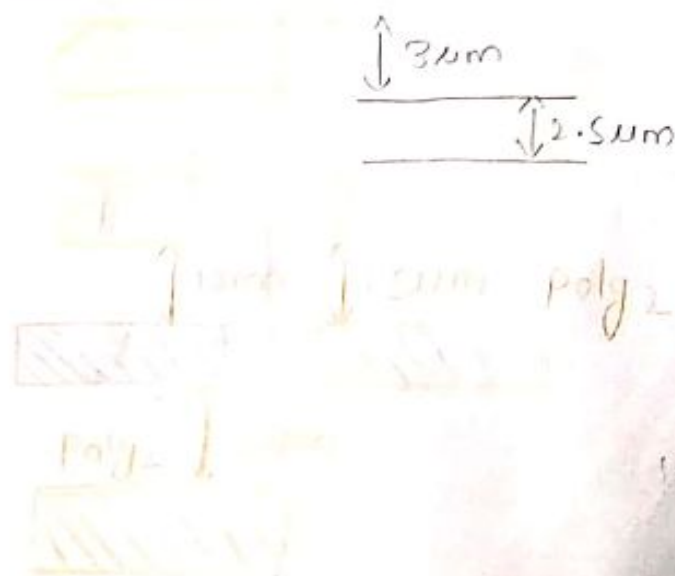 3μm
2.5μm
poly2
poly